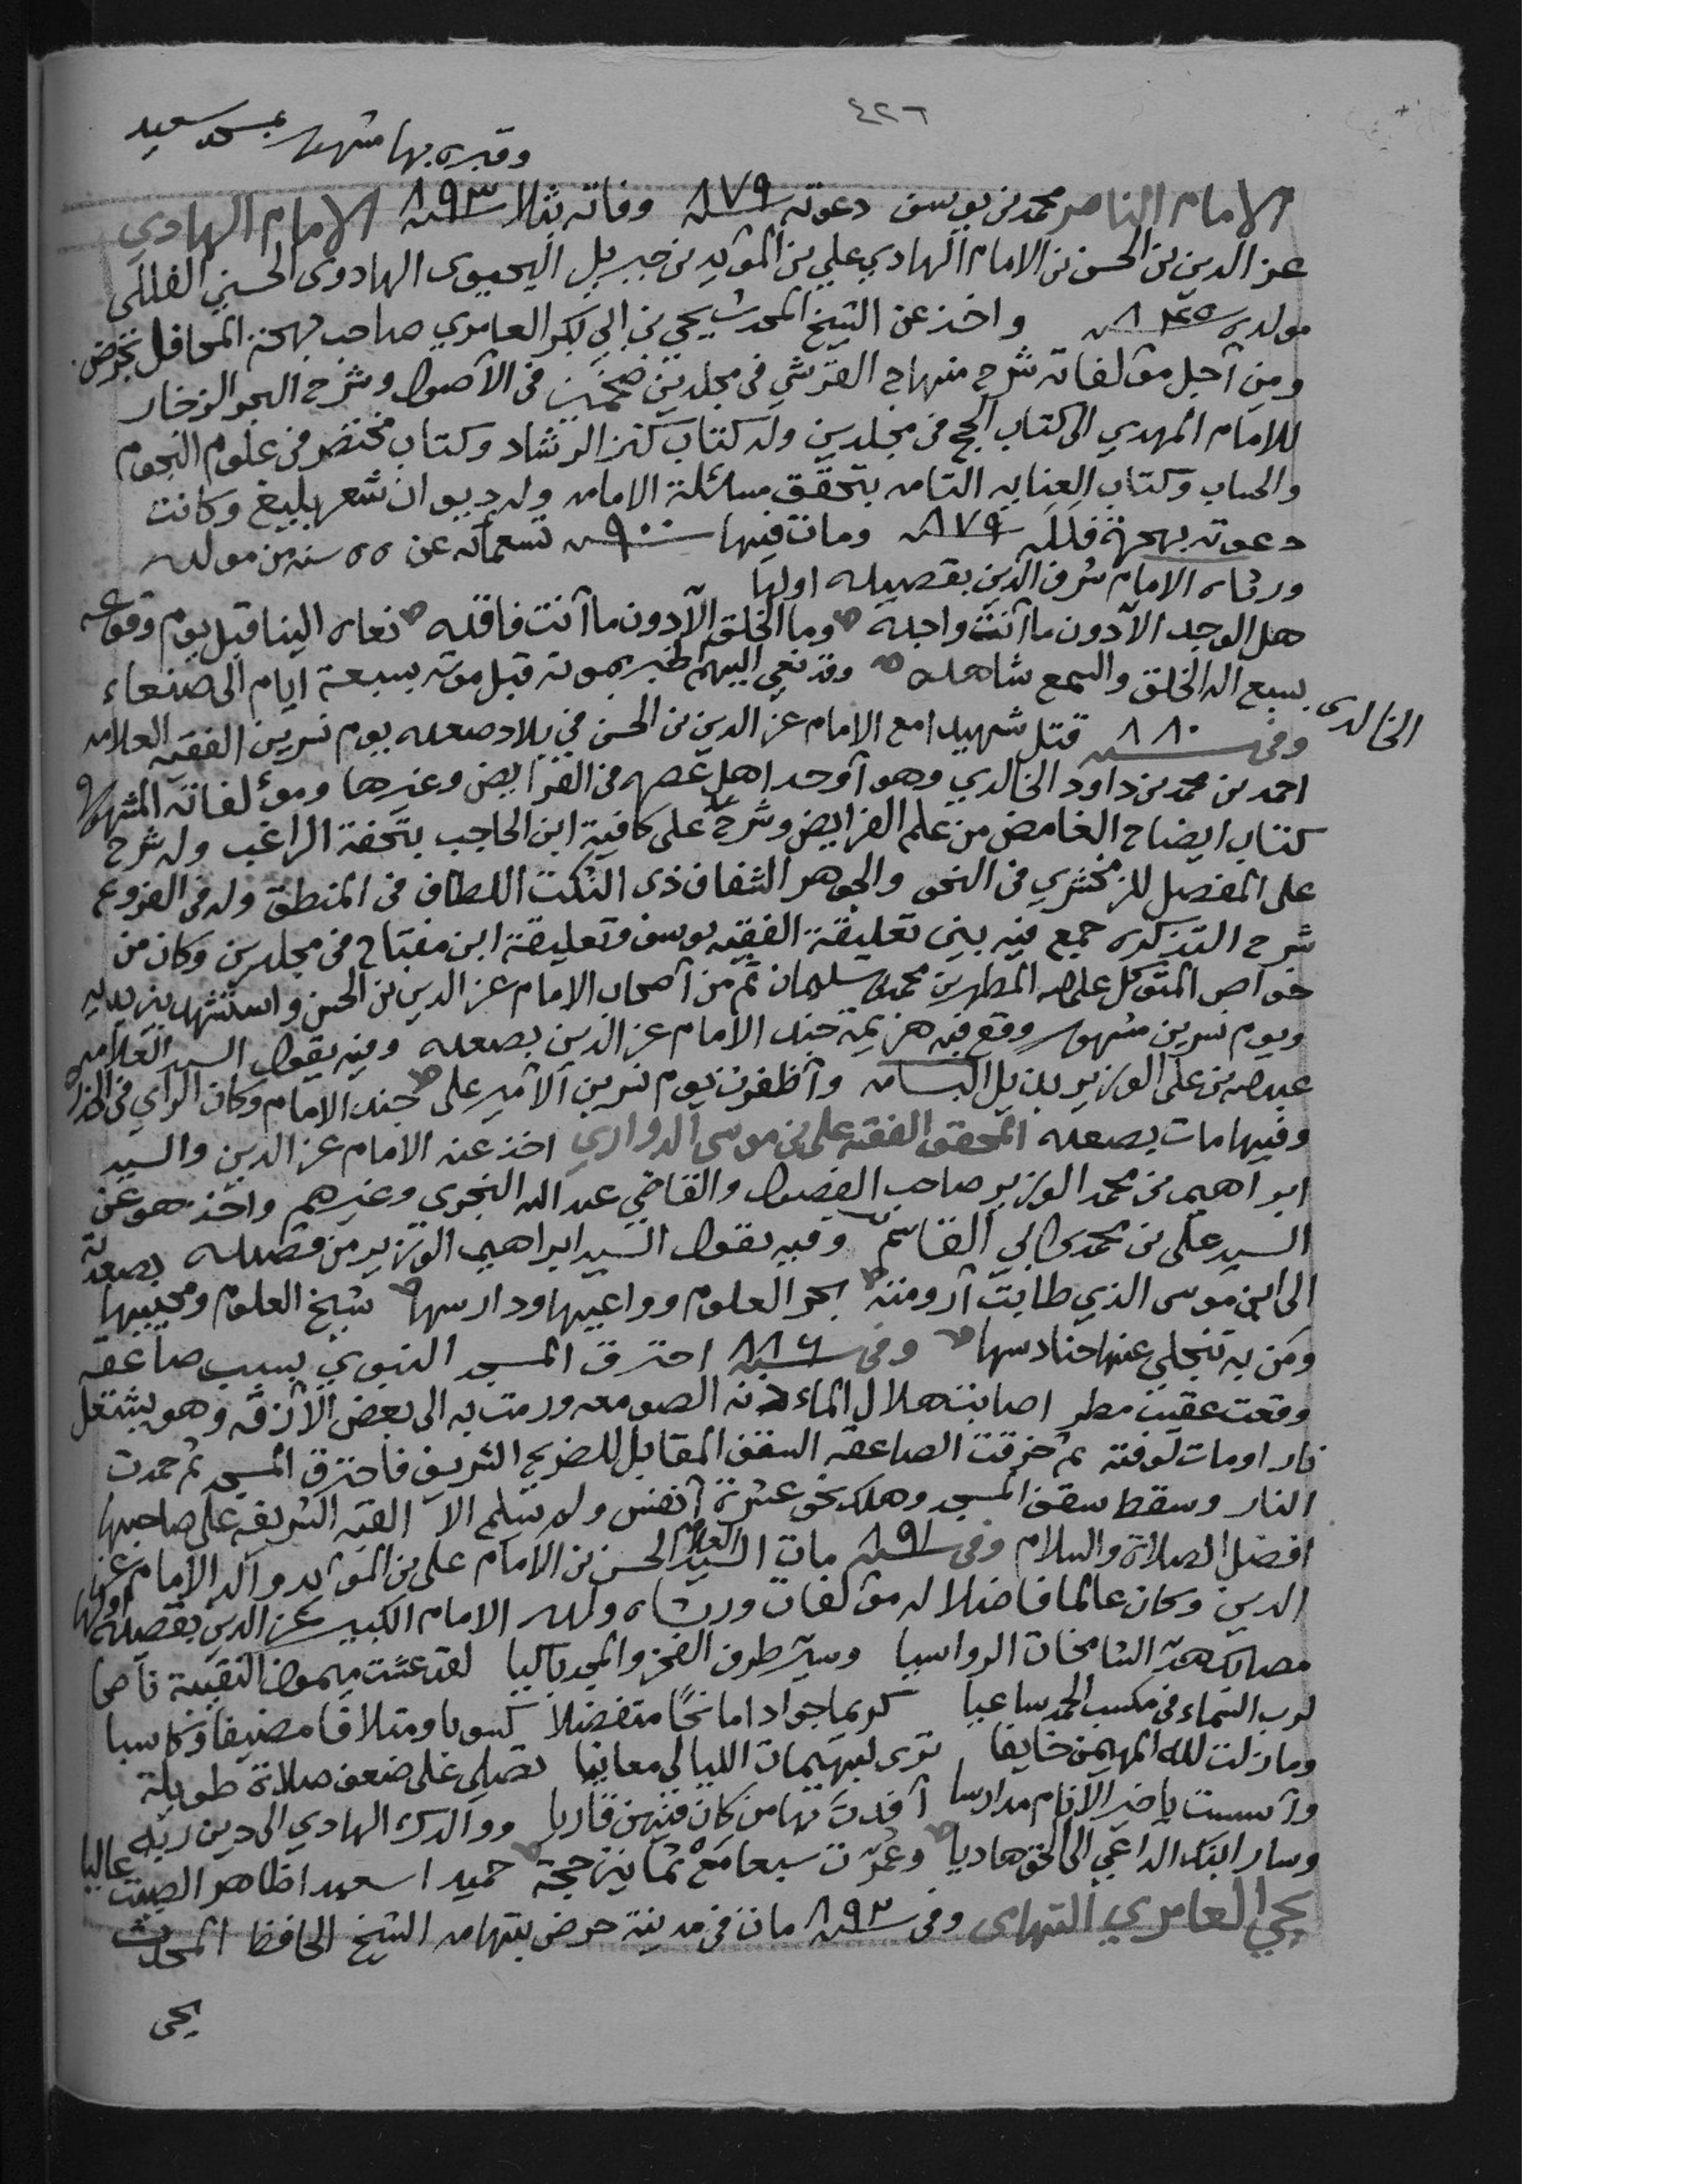 ٤٢٦
وقبره بها مشهور بمسجد سعيد
الامام الناصر محمد بن يوسف دعوته سنة ٨٧٩ وفاته بثلا سنة ٨٩٣ الامام الهادي
عز الدين بن الحسن بن الامام الهادي علي بن المؤيد بن جبريل اليحيوى الهادوى الحسني الفللى
مولده سنة ٨٤٥ واخذ عن الشيخ المحدث يحي بن ابي بكر العامري صاحب بهجة المحافل بحرض
ومن آجل مؤلفاته شرح منهاج القرشي في مجلدين ضخمين في الأصول وشرح البحر الزخار
للامام المهدي الى كتاب الحج في مجلدين وله كتاب كنز الرشاد وكتاب مختصر في علوم النجوم
والحساب وكتاب العنايه التامه بتحقق مسائلة الامامه وله ديوان شعر بليغ وكانت
دعوته بهجرة فلله سنة ٨٧٩ ومات فيها سنة ٩٠٠ تسعمائه عن ٥٥ سنه من مولده
ورثاه الامام شرف الدين بقصيده اولها
هل الوجد الآ دون ما آنت واجده وما الخلق الآ دون ما آنت فاقده نعاه الينا قبل يوم وقوعه
بسبع اله الخلق والسمع شاهده وقد نعي اليهم الخبر بموته قبل موته بسبعة ايام الى صنعاء
الخالدى
وفي سنة ٨٨٠ قتل شهيدا مع الامام عز الدين بن الحسن في بلاد صعده يوم نسرين الفقيه العلامه
احمد بن محمد بن داود الخالدي وهو آوحد اهل عصره في الفرايض وغيرها ومؤلفاته المشهوره
كتاب ايضاح الغامض من علم الفرايض وشرح على كافية ابن الحاجب بتحفة الراغب وله شرح
على المفصل للزمخشري في النحو والجوهر الشفاف ذى النكت اللطاف في المنطق وله في الفروع
شرح التذكره جمع فيه بين تعليقة الفقيه يوسف وتعليقة ابن مفتاح في مجلدين وكان من
خواص المتوكل على الله المطهر بن محمد بن سليمان ثم من آصحاب الامام عز الدين بن الحسن واستشهد بين يديه
ويوم نسرين مشهور وقع فيه هزيمة جند الامام عز الدين بصعده وفيه يقول السيد العلامه
عبدالله بن على الوزير بذيل البسامه وآظفرت يوم نسرين الآمير على جند الامام وكان الراي في الحذر
وفيها مات بصعده المحقق الفقيه علي بن موسى الدواري اخذ عنه الامام عز الدين والسيد
ابراهيم بن محمد الوزير صاحب الفصول والقاضي عبد الله النجرى وغيرهم واخذ هو عن
السيد علي بن محمد بن ابي القاسم وفيه يقول السيد ابراهيم الوزير من قصيده بصعدة
الى ابن موسى الذي طابت آرومته بحر العلوم وواعيها ودارسها شيخ العلوم ومحييها
ومن به تنجلي عنها حنادسها وفي سنة ٨٨٦ احترق المسجد النبوي بسبب صاعقه
وقعت عقيب مطر اصابت هلال الماذنه الصومعه ورمت به الى بعض الآزقه وهو يشتعل
نارا ومات لوقته ثم خرقت الصاعقه السقف المقابل للضريح الشريف فاحترق المسجد ثم خمدت
النار وسقط سقف المسجد وهلك نحو عشرة آنفس ولم يسلم الا القبه الشريفه على صاحبها
افضل الصلاة والسلام وفي سنة ٨٩١ مات السيد العلامه الحسن بن الامام علي بن المؤيد والد الامام عز
الدين وكان عالما فاضلا له مؤلفات ورثاه ولده الامام الكبير عز الدين بقصيده اولها
مصابك هد الشامخات الرواسيا وسير طرف الفخر والمجد باكيا لقد عشت ميمون النقيبة ناصحا
لرب السماء في مكسب الحمد ساعيا كريما جوادا مانحًا متفضلا كسوبا ومتلافا مضيفا وكاسبا
وما زلت لله المهيمن خايفا ترى لبهيمات الليالي معانيا تصلى على ضعف صلاة طويلة
وآسست يا خير الآنام مدارسا آفدت بها من كان فيهن قاريا ووالدك الهادي الى دين ربه
وسار ابنك الداعي الى الحق هاديا وعُمّرت سبعا مَعْ ثمانين حجة حميدا سعيدا ظاهر الصيت عاليا
يحي العامري التهامى وفي سنة ٨٩٣ مات في مدينة حرض بتهامه الشيخ الحافظ المحدث
يحى